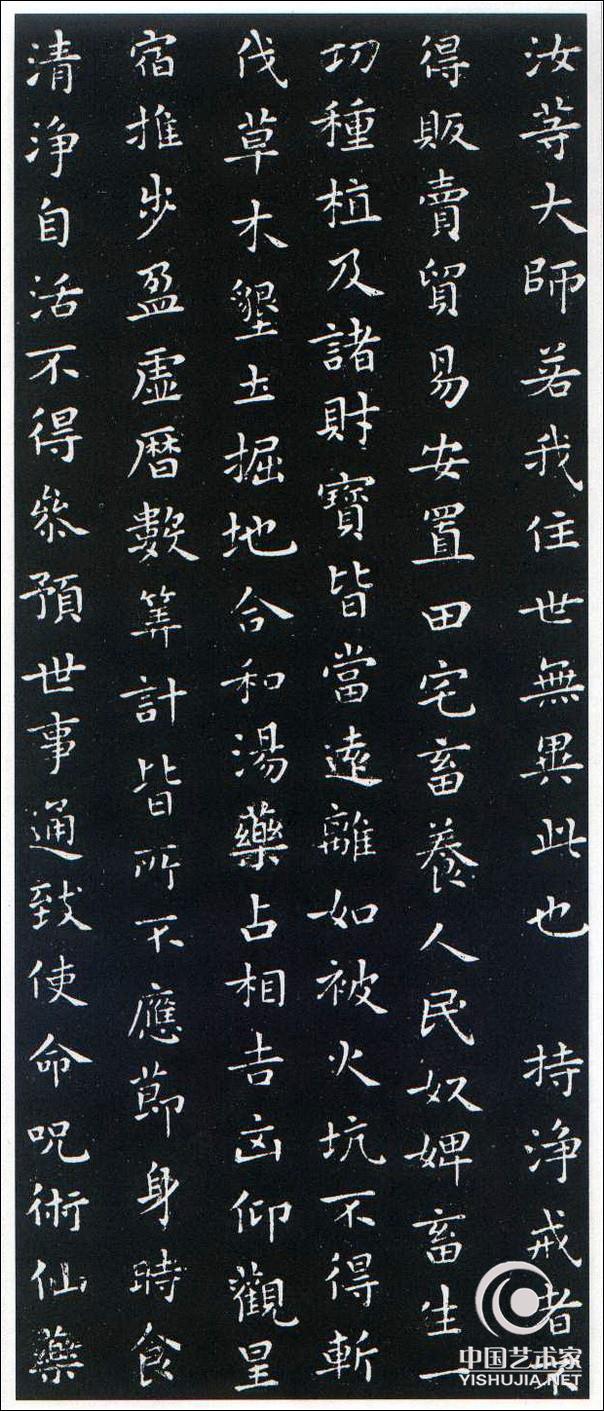 汝等大師若我住世無異此也　持淨戒者不
得販賣貿易安置田宅畜養人民奴婢畜生一
切種植及諸財寶皆當遠離如被火坑不得斬
伐草木墾土掘地合和湯藥占相吉凶仰觀星
宿推步盈虛曆數筭計皆所不應節身時食
清淨自活不得叅預世事通致使命呪術仙藥
中国艺术家
YISHUJIA.NET